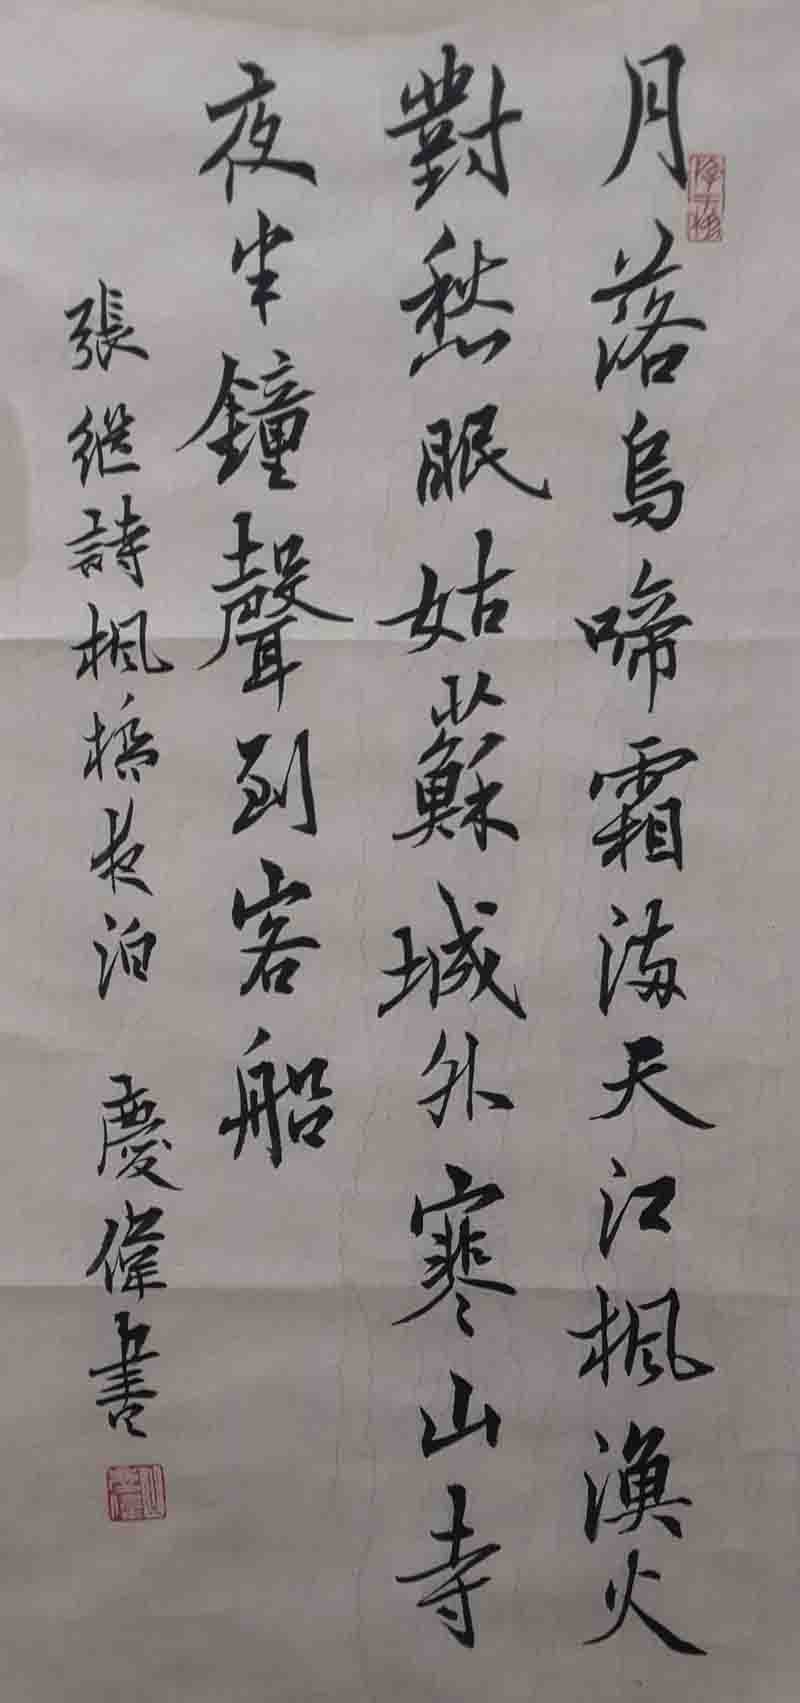 月落烏啼霜滿天江楓漁火
對愁眠姑蘇城外寒山寺
夜半鐘聲到客船
張繼詩楓橋夜泊 慶偉書